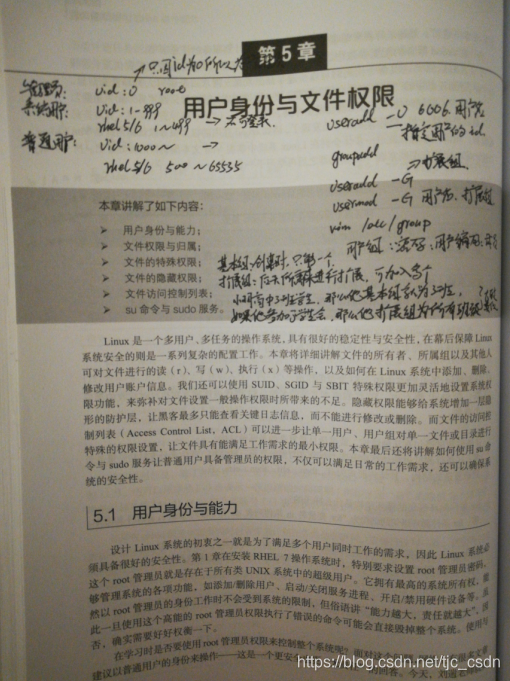 第 5 章
用户身份与文件权限
管理员: uid: 0 root
系统用户: uid: 1-999
rhel5/6 1~499 → 不可登录
普通用户: uid: 1000~ →
rhel5/6 500~65535
useradd -u 6006 用户名
指定用户的id
groupadd
→扩展组
useradd -G
usermod -G 用户名, 扩展组
vim /etc/group
用户组: 密码: 用户编码:
基本组: 创建时, 只能一个
扩展组: 后天所需来进行扩展, 可加入多个
本章讲解了如下内容:
➢ 用户身份与能力;
➢ 文件权限与归属;
➢ 文件的特殊权限;
➢ 文件的隐藏权限;
➢ 文件访问控制列表;
➢ su 命令与 sudo 服务。
Linux 是一个多用户、多任务的操作系统,具有很好的稳定性与安全性,在幕后保障 Linux
系统安全的则是一系列复杂的配置工作。本章将详细讲解文件的所有者、所属组以及其他人
可对文件进行的读(r)、写(w)、执行(x)等操作,以及如何在 Linux 系统中添加、删除、
修改用户账户信息。我们还可以使用 SUID、SGID 与 SBIT 特殊权限更加灵活地设置系统权
限功能,来弥补对文件设置一般操作权限时所带来的不足。隐藏权限能够给系统增加一层隐
形的防护层,让黑客最多只能查看关键日志信息,而不能进行修改或删除。而文件的访问控
制列表(Access Control List,ACL)可以进一步让单一用户、用户组对单一文件或目录进行
特殊的权限设置,让文件具有能满足工作需求的最小权限。本章最后还将讲解如何使用 su 命
令与 sudo 服务让普通用户具备管理员的权限,不仅可以满足日常的工作需求,还可以确保系
统的安全性。
5.1 用户身份与能力
设计 Linux 系统的初衷之一就是为了满足多个用户同时工作的需求,因此 Linux 系统必
须具备很好的安全性。第 1 章在安装 RHEL 7 操作系统时,特别要求设置 root 管理员密码,
这个 root 管理员就是存在于所有类 UNIX 系统中的超级用户。它拥有最高的系统所有权,能
够管理系统的各项功能,如添加/删除用户、启动/关闭服务进程、开启/禁用硬件设备等。虽
然以 root 管理员的身份工作时不会受到系统的限制,但俗语讲"能力越大,责任就越大",因
此一旦使用这个高能的 root 管理员权限执行了错误的命令可能会直接毁掉整个系统。使用与
否,确实需要好好权衡一下。
在学习时是否要使用 root 管理员权限来控制整个系统呢?
建议以普通用户的身份来操作——这是一个更安
https://blog.csdn.net/tjc_csdn